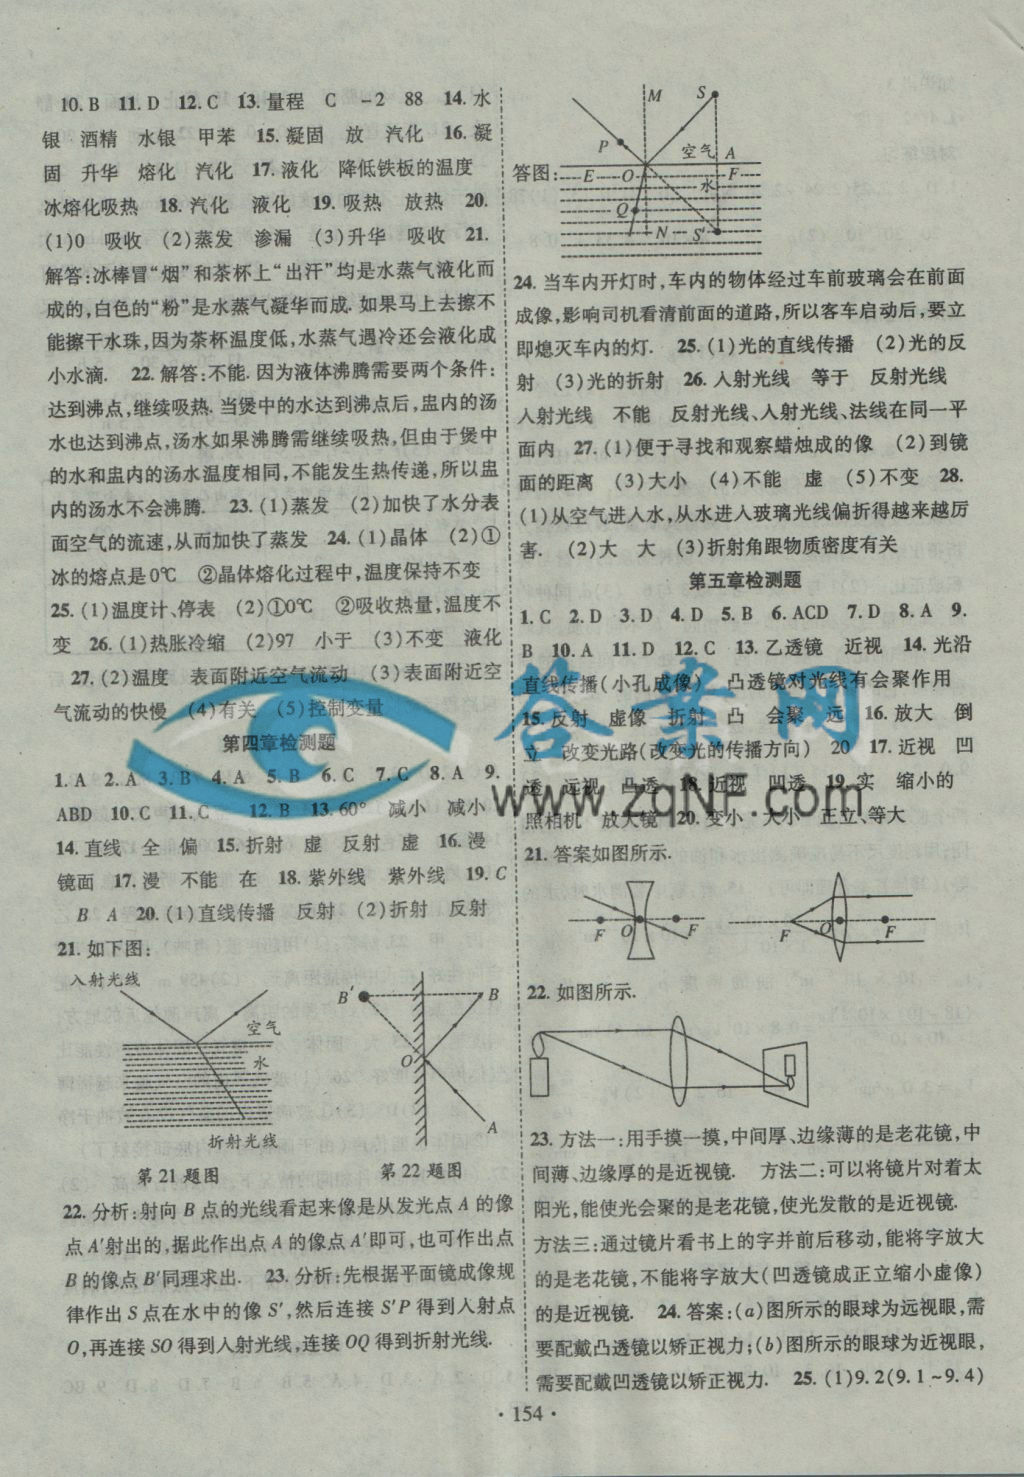 10. B 11. D 12. C 13. 量程 C -2 88 14. 水
银 酒精 水银 甲苯 15. 凝固 放 汽化 16. 凝
固 升华 熔化 汽化 17. 液化 降低铁板的温度
冰熔化吸热 18. 汽化 液化 19. 吸热 放热 20.
(1)0 吸收 (2)蒸发 渗漏 (3)升华 吸收 21.
解答:冰棒冒“烟”和茶杯上“出汗”均是水蒸气液化而
成的,白色的“粉”是水蒸气凝华而成. 如果马上去擦不
能擦干水珠,因为茶杯温度低,水蒸气遇冷还会液化成
小水滴. 22. 解答:不能. 因为液体沸腾需要两个条件:
达到沸点,继续吸热. 当煲中的水达到沸点后,盅内的汤
水也达到沸点,汤水如果沸腾需继续吸热,但由于煲中
的水和盅内的汤水温度相同,不能发生热传递,所以盅
内的汤水不会沸腾. 23. (1)蒸发 (2)加快了水分表
面空气的流速,从而加快了蒸发 24. (1)晶体 (2)①
冰的熔点是0℃ ②晶体熔化过程中,温度保持不变
25. (1)温度计、停表 (2)①0℃ ②吸收热量,温度不
变 26. (1)热胀冷缩 (2)97 小于 (3)不变 液化
27. (2)温度 表面附近空气流动 (3)表面附近空
气流动的快慢 (4)有关 (5)控制变量
第四章检测题
1. A 2. A 3. B 4. A 5. B 6. C 7. C 8. A 9.
ABD 10. C 11. C 12. B 13. 60° 减小 减小
14. 直线 全 偏 15. 折射 虚 反射 虚 16. 漫
镜面 17. 漫 不能 在 18. 紫外线 紫外线 19. C
B A 20. (1)直线传播 反射 (2)折射 反射
21. 如下图:
入射光线
空气
水
折射光线
第21题图
B′
B
O
A
第22题图
22. 分析:射向 B 点的光线看起来像是从发光点 A 的像
点 A′射出的,据此作出点 A 的像点 A′即可,也可作出点
B 的像点 B′同理求出. 23. 分析:先根据平面镜成像规
律作出 S 点在水中的像 S′,然后连接 S′P 得到入射点
O,再连接 SO 得到入射光线,连接 OQ 得到折射光线.
M S
P
空气 A
答图: E O F
水
Q
N S′
24. 当车内开灯时,车内的物体经过车前玻璃会在前面
成像,影响司机看清前面的道路,所以客车启动后,要立
即熄灭车内的灯. 25. (1)光的直线传播 (2)光的反
射 (3)光的折射 26. 入射光线 等于 反射光线
入射光线 不能 反射光线、入射光线、法线在同一平
面内 27. (1)便于寻找和观察蜡烛成的像 (2)到镜
面的距离 (3)大小 (4)不能 虚 (5)不变 28.
(1)从空气进入水,从水进入玻璃光线偏折得越来越厉
害. (2)大 大 (3)折射角跟物质密度有关
第五章检测题
1. C 2. D 3. D 4. D 5. B 6. ACD 7. D 8. A 9.
B 10. A 11. D 12. C 13. 乙透镜 近视 14. 光沿
直线传播(小孔成像) 凸透镜对光线有会聚作用
15. 反射 虚像 折射 凸 会聚 远 16. 放大 倒
立 改变光路(改变光的传播方向) 20 17. 近视 凹
透 远视 凸透 18. 近视 凹透 19. 实 缩小的
照相机 放大镜 20. 变小 大小 正立、等大
21. 答案如图所示.
F O F
F O F
22. 如图所示.
23. 方法一:用手摸一摸,中间厚、边缘薄的是老花镜,中
间薄、边缘厚的是近视镜. 方法二:可以将镜片对着太
阳光,能使光会聚的是老花镜,使光发散的是近视镜.
方法三:通过镜片看书上的字并前后移动,能将字放大
的是老花镜,不能将字放大(凹透镜成正立缩小虚像)
的是近视镜. 24. 答案:(a)图所示的眼球为远视眼,需
要配戴凸透镜以矫正视力;(b)图所示的眼球为近视眼,
需要配戴凹透镜以矫正视力. 25. (1)9.2(9.1~9.4)
· 154 ·
答案网
www.zqNF.com